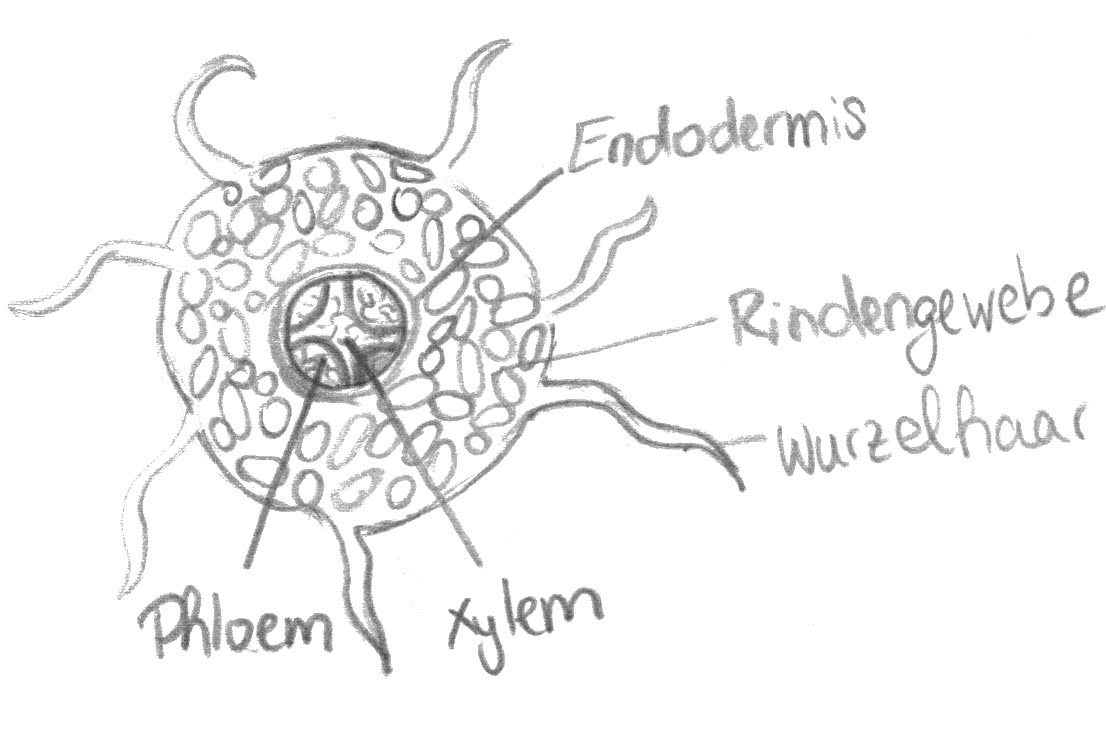 Endodermis
Rindengewebe
Wurzelhaar
Phloem
Xylem